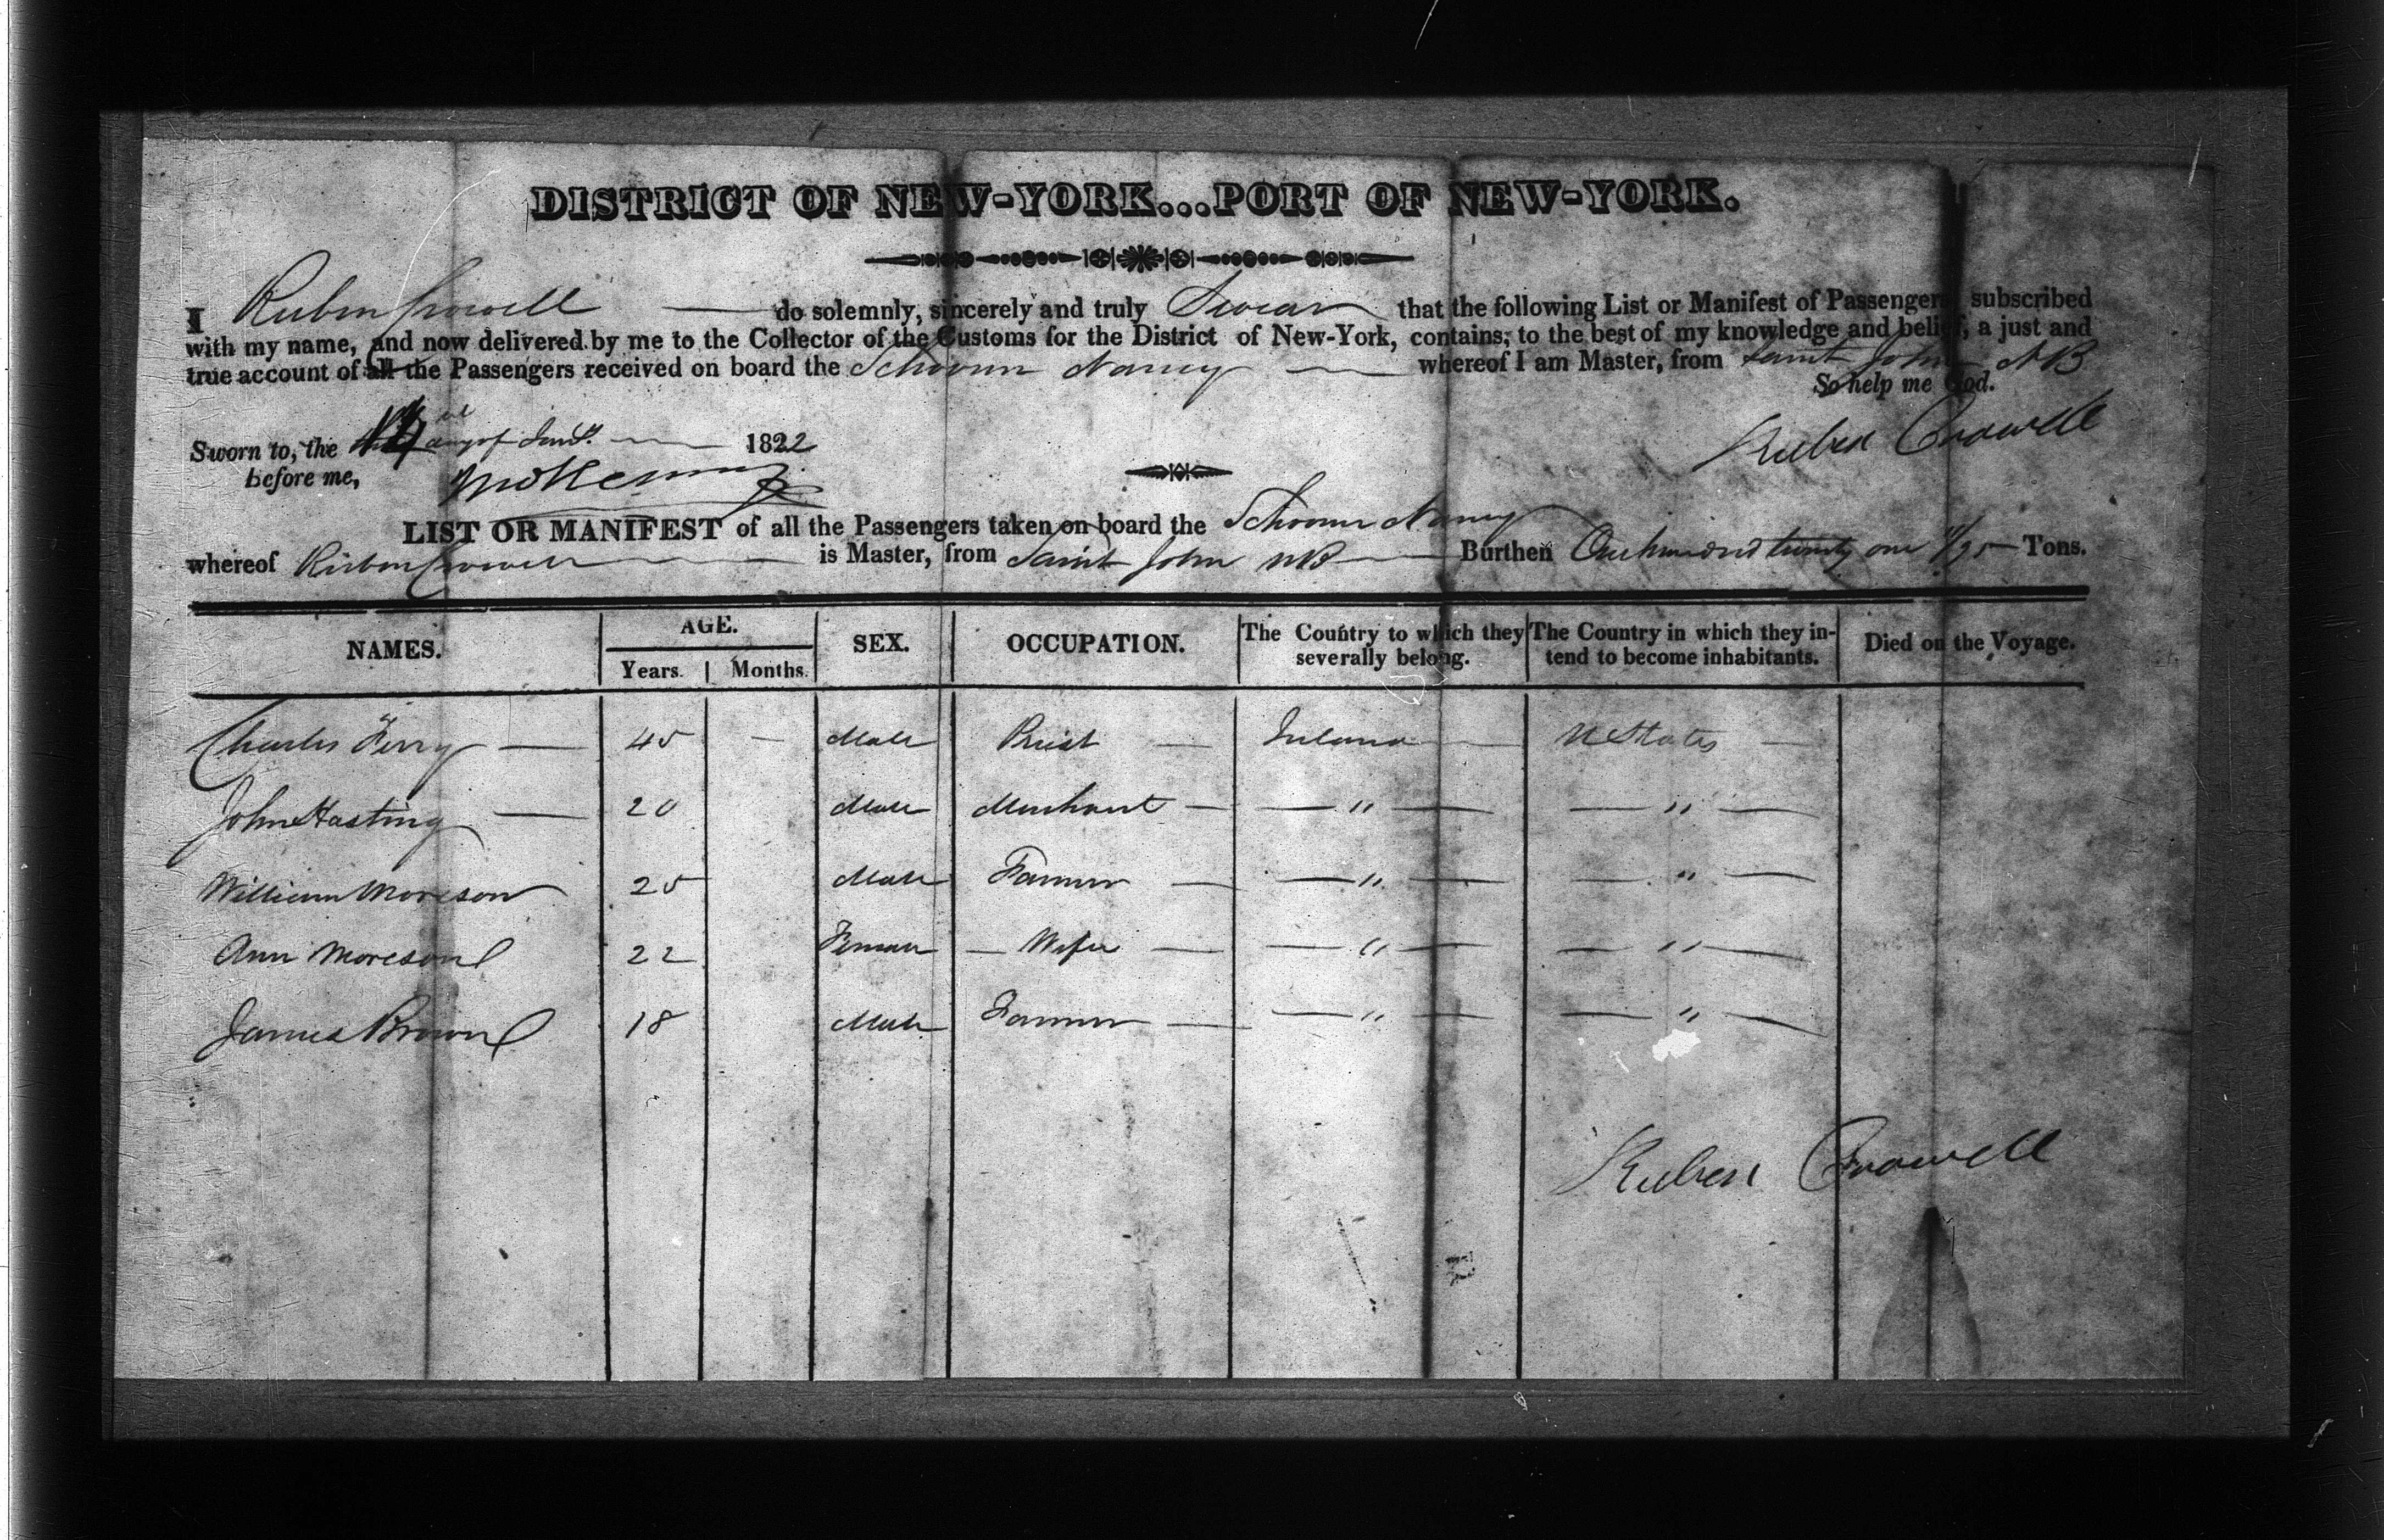 DISTRICT OF NEW-YORK...PORT OF NEW-YORK.
I Ruben Crowell do solemnly, sincerely and truly Swear that the following List or Manifest of Passengers subscribed
with my name, and now delivered by me to the Collector of the Customs for the District of New-York, contains, to the best of my knowledge and belief, a just and
true account of all the Passengers received on board the Schooner Nancy whereof I am Master, from Saint John NB
So help me God.
Sworn to, the day of 1822
before me,
Ruben Crowell
LIST OR MANIFEST of all the Passengers taken on board the Schooner Nancy
whereof Ruben Crowell is Master, from Saint John NB Burthen One hundred twenty one /95 Tons.
NAMES. AGE. SEX. OCCUPATION. The Country to which they severally belong. The Country in which they in-tend to become inhabitants. Died on the Voyage.
Years. Months.
Charles Ferry — 45 — Male Priest — Ireland — U States —
John Hasting — 20 Male Merchant — — " — — " —
William Moreson 25 Male Farmer — — " — — " —
Ann Moreson 22 Female — Wife — — " — — " —
James Brown 18 Male Farmer — — " — — " —
Ruben Crowell